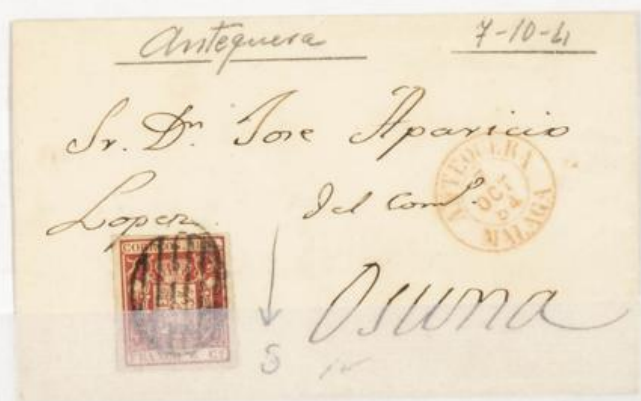 Antequera 7-10-4
Sr. Dn. Jose Aparicio
Lopez. del Comº.
Osuna
S
ANTEQUERA
OCT
54
MALAGA
CORREOS